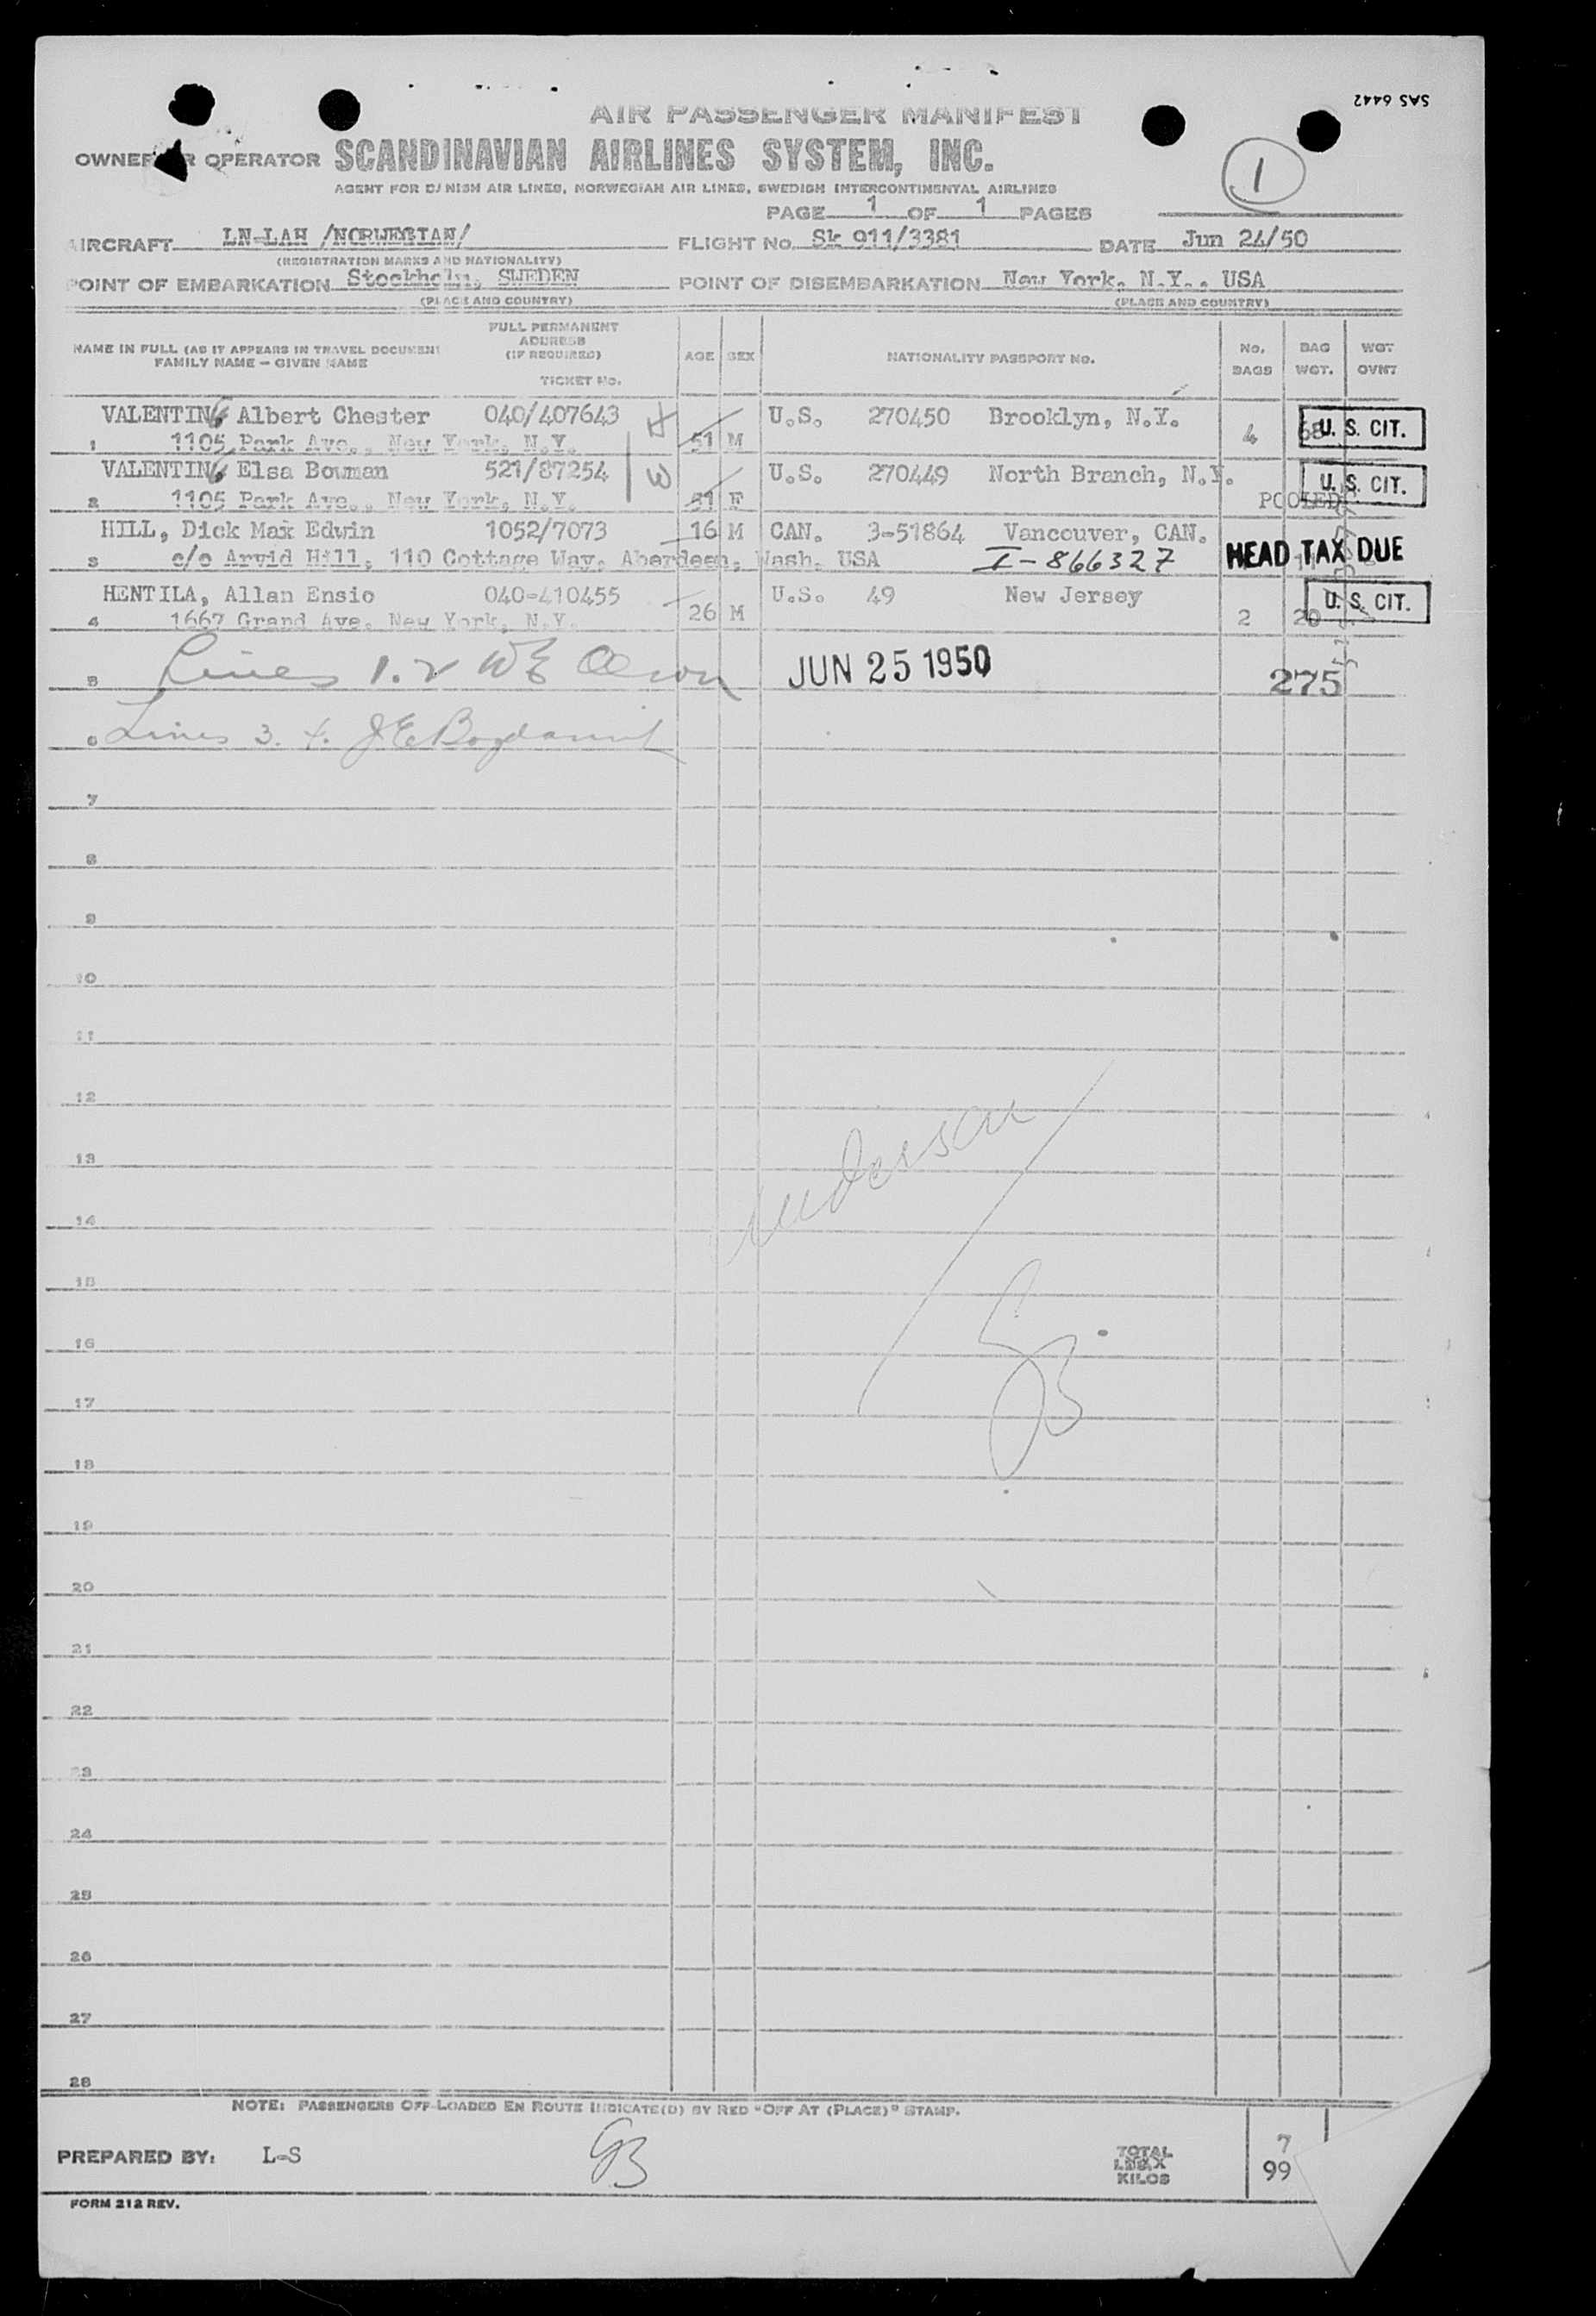 SAS 6442
AIR PASSENGER MANIFEST
OWNER OR OPERATOR SCANDINAVIAN AIRLINES SYSTEM, INC.
AGENT FOR DANISH AIR LINES, NORWEGIAN AIR LINES, SWEDISH INTERCONTINENTAL AIRLINES
1
PAGE 1 OF 1 PAGES
AIRCRAFT LN-LAH /NORWEGIAN/ FLIGHT No. Sk 911/3381 DATE Jun 24/50
(REGISTRATION MARKS AND NATIONALITY)
POINT OF EMBARKATION Stockholm, SWEDEN POINT OF DISEMBARKATION New York, N.Y., USA
(PLACE AND COUNTRY) (PLACE AND COUNTRY)
NAME IN FULL (AS IT APPEARS IN TRAVEL DOCUMENT
FAMILY NAME - GIVEN NAME
FULL PERMANENT
ADDRESS
(IF REQUIRED)
TICKET No.
AGE SEX NATIONALITY PASSPORT No. No. BAGS BAG WGT. WGT OVNT
VALENTINE Albert Chester 040/407643 H U.S. 270450 Brooklyn, N.Y. U. S. CIT.
1 1105 Park Ave., New York, N.Y. 51 M 4 68
VALENTINE Elsa Bowman 521/87254 W U.S. 270449 North Branch, N.Y. U. S. CIT.
2 1105 Park Ave., New York, N.Y. 51 F POOLED
HILL, Dick Max Edwin 1052/7073 16 M CAN. 3-51864 Vancouver, CAN.
3 c/o Arvid Hill, 110 Cottage Way, Aberdeen, Wash. USA I-866327 HEAD TAX DUE
HENTILA, Allan Ensio 040-410455 U.S. 49 New Jersey U. S. CIT.
4 1667 Grand Ave. New York, N.Y. 26 M 2 20
5 Lines 1.2 WE Olson JUN 25 1950 275
6 Lines 3. 4.
7
8
9
10
11
12
13 Anderson
14
15
16
17
18
19
20
21
22
23
24
25
26
27
28
NOTE: PASSENGERS OFF-LOADED EN ROUTE INDICATE(D) BY RED "OFF AT (PLACE)" STAMP.
PREPARED BY: L-S TOTAL 7
KILOS 99
FORM 212 REV.